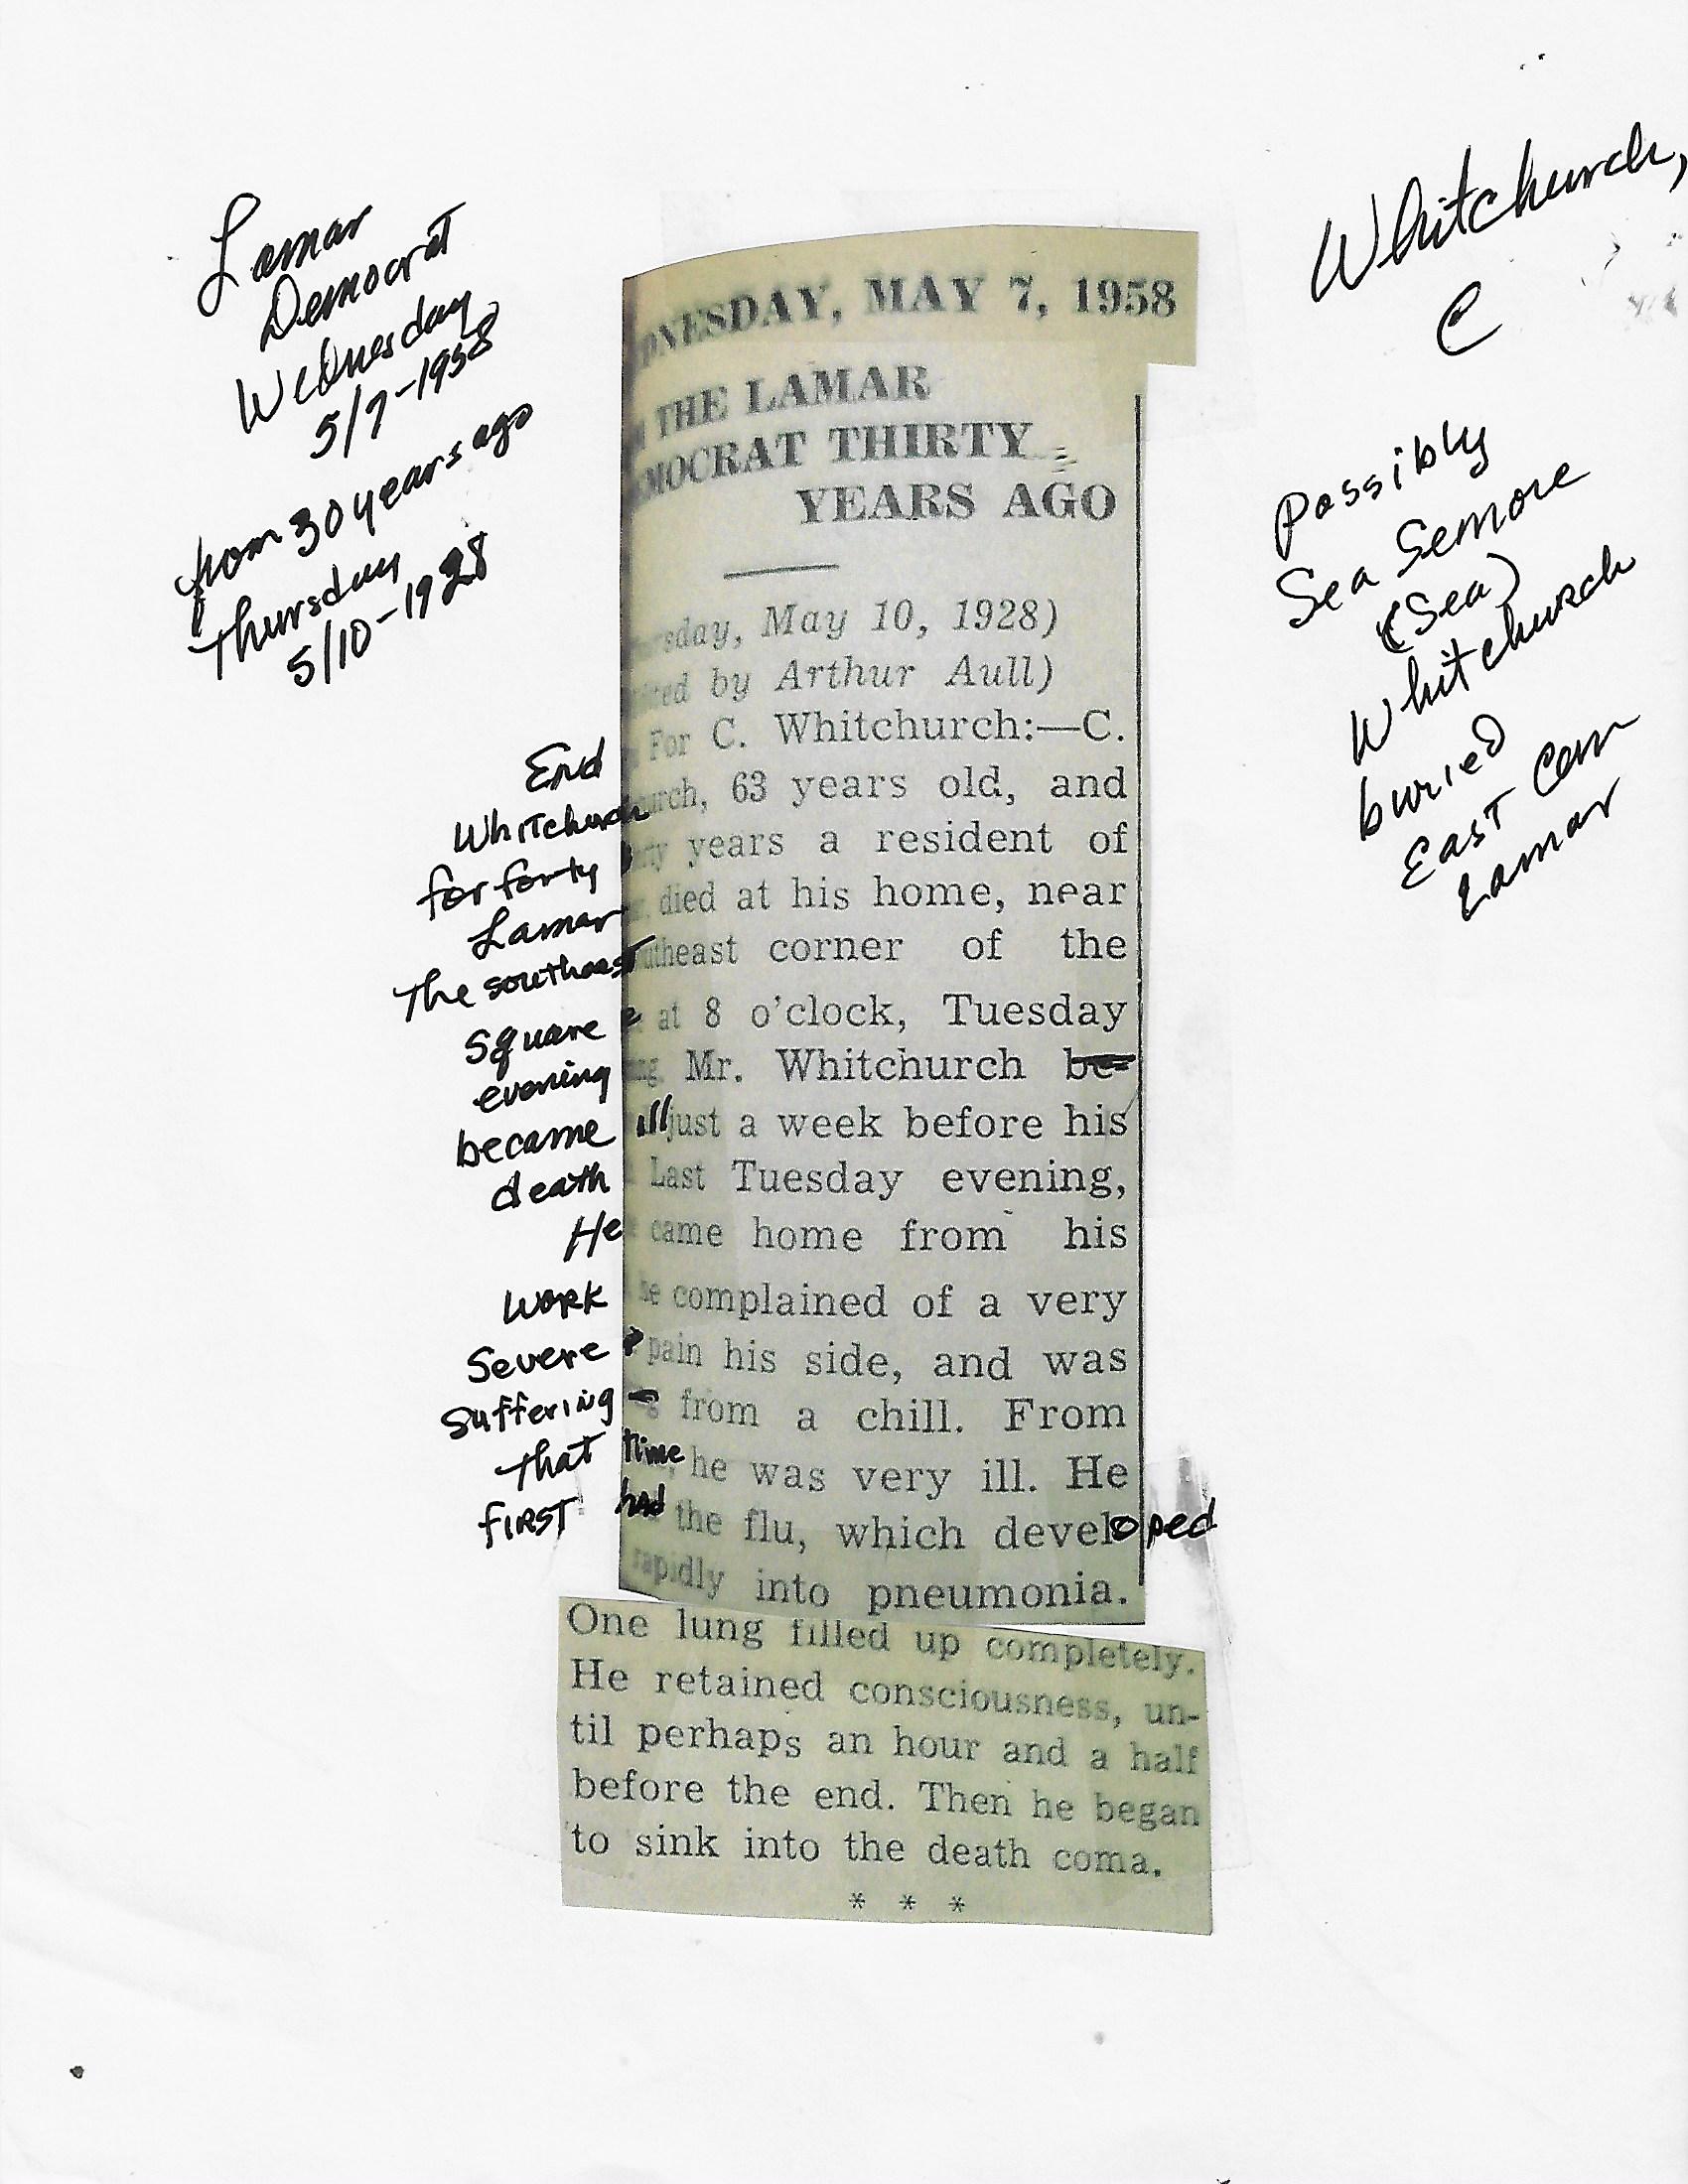 Lamar
Democrat
Wednesday
5/7-1958
from 30 years ago
Thursday
5/10-1928
Whitchurch,
C
Possibly
Sea Semore
(Sea)
Whitchurch
buried
East Cem
Lamar
DNESDAY, MAY 7, 1958
THE LAMAR
MOCRAT THIRTY
YEARS AGO
sday, May 10, 1928)
by Arthur Aull)
End For C. Whitchurch:—C.
Whitchurch urch, 63 years old, and
for forty rty years a resident of
Lamar died at his home, near
The southeast utheast corner of the
Square e at 8 o'clock, Tuesday
evening ng. Mr. Whitchurch be-
became ill just a week before his
death Last Tuesday evening,
He came home from his
work he complained of a very
Severe pain his side, and was
Suffering g from a chill. From
That time, he was very ill. He
First had the flu, which developed
rapidly into pneumonia.
One lung filled up completely.
He retained consciousness, un-
til perhaps an hour and a half
before the end. Then he began
to sink into the death coma.
* * *